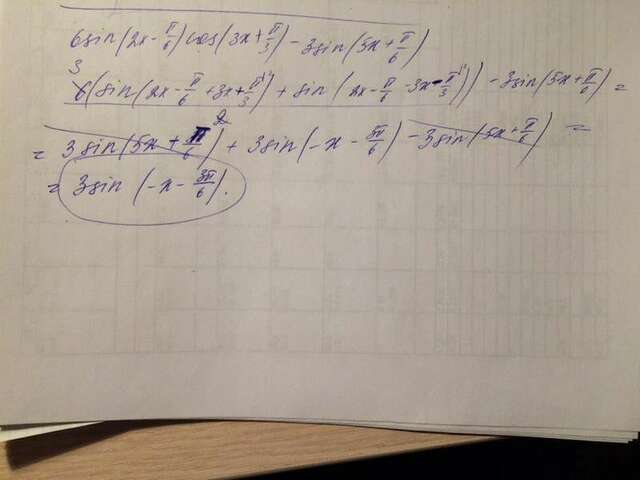 6sin(2x - π/6) cos(3x + π/3) - 3sin(5x + π/6)
3
6(sin(2x - π/6 + 3x + π/3) + sin(2x - π/6 - 3x - π/3)) - 3sin(5x + π/6) =
2
= 3sin(5x + π/6) + 3sin(-x - 3π/6) - 3sin(5x + π/6) =
= 3sin(-x - 3π/6).